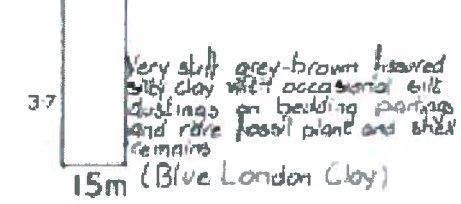 Very stiff grey-brown fissured
silty clay with occasional silt
3.7
dustings on bedding partings
and rare fossil plant and shell
remains
15m (Blue London Clay)